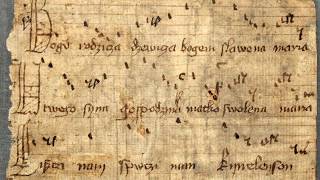 Bogu rodzicza dzewicza bogem slawena maria
U twego syna gospodzina matko swolena maria
Siszczi nam spwczi nam Kyrieleyson